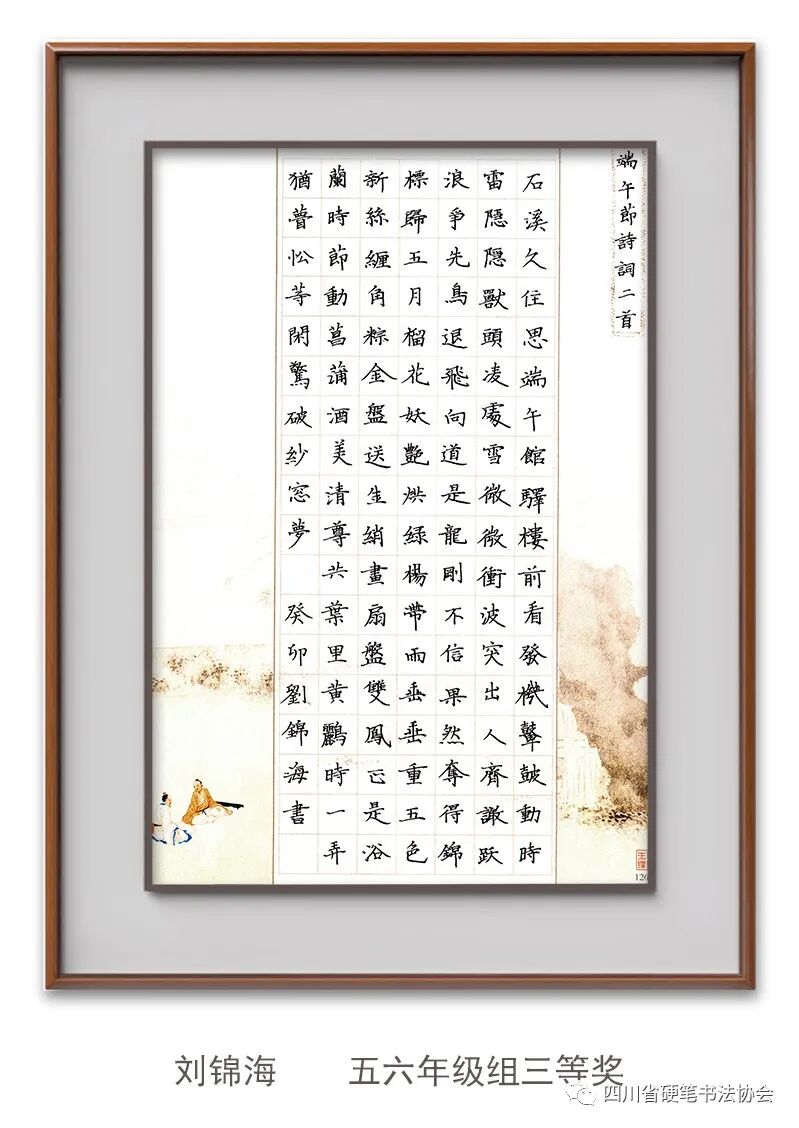 端午節詩詞二首
石溪久住思端午館驛樓前看發機鼙鼓動時
雷隱隱獸頭凌處雪微微衝波突出人齊譀跃
浪爭先鳥退飛向道是龍剛不信果然奪得錦
標歸五月榴花妖艷烘綠楊帶雨垂垂重五色
新絲纏角粽金盤送生綃畫扇盤雙鳳正是浴
蘭時節動菖蒲酒美清尊共葉里黃鸝時一弄
猶瞢忪等閑驚破紗窓夢 癸卯劉錦海書
126
刘锦海 五六年级组三等奖
四川省硬笔书法协会